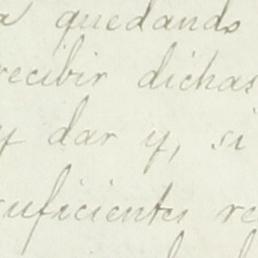 a quedando
recibir dichas
y dar y, si
suficientes re